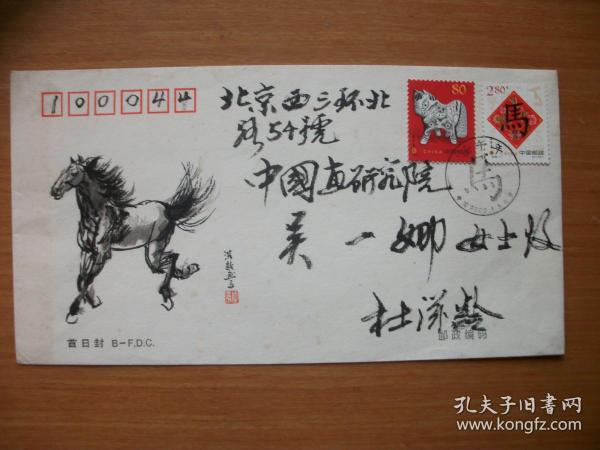 100044
北京西三环北
路54號
中國画研究院
吴一娜女士收
杜滋龄
80
2.80
馬
中国邮政
馬
首日封 B-F.D.C.
邮政编码
孔夫子旧书网
www.kongfz.com